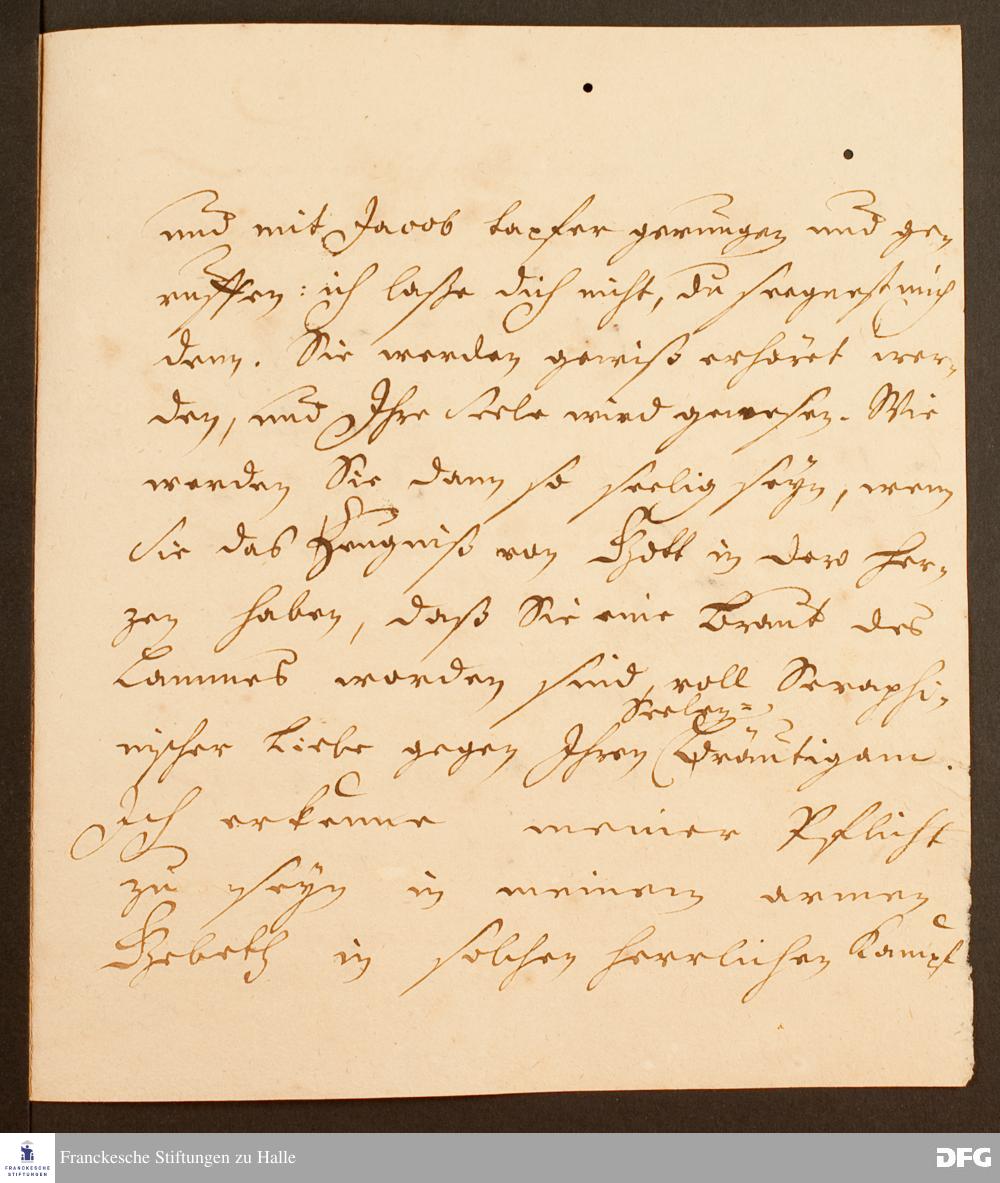 und mit Jacob tapfer gerungen und ge-
ruffen: ich laße dich nicht, du seegnest mich
denn. Sie werden gewiß erhöret wer-
den, und Ihre Seele wird genesen. Wie
werden Sie dann so seelig seyn, wenn
Sie das Zeugniß von Gott in dero Her-
zen haben, daß Sie eine Braut des
Lammes worden sind, voll Seraphi-
nischer Liebe gegen Ihren Seelen-
Bräutigam.
Ich erkenne meiner Pflicht
zu seyn in meinem armen
Gebeth in solchen herrlichen Kampf
FRANCKESCHE STIFTUNGEN
Franckesche Stiftungen zu Halle
DFG